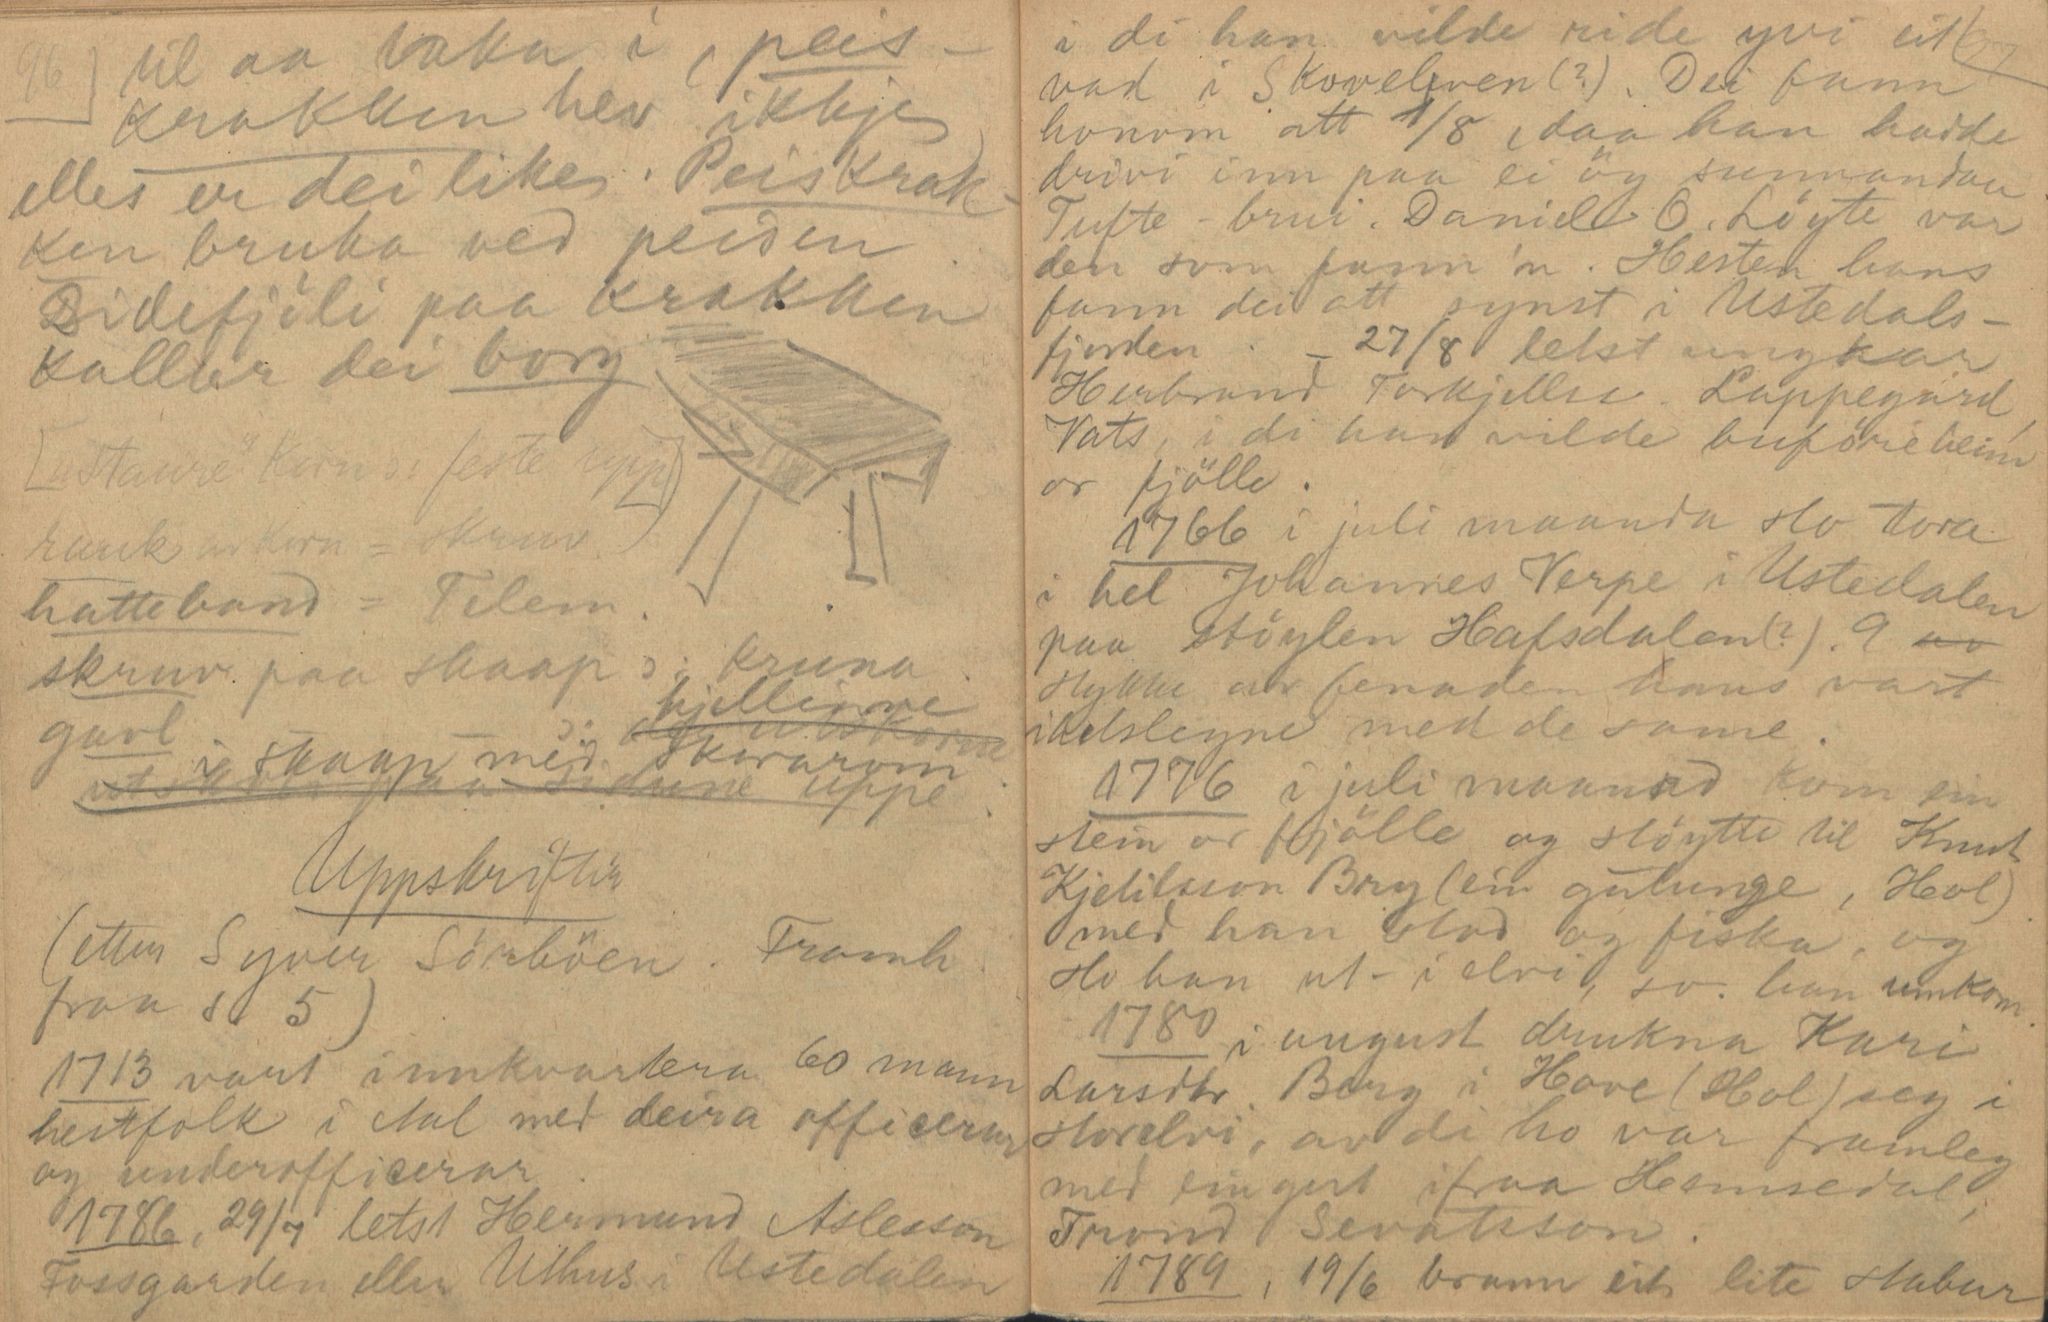 96]
til aa taka i, peis-
krakken hev ikkje,
elles er dei like. Peiskrak-
ken bruka ved peisen.
Sidefjöli paa krakken
kallar dei borg
["staure" korn ɔ: feste upp]
rauk av korn = skruv.)
hatteband = Telem.
skruv paa skaap ɔ: kruna.
gavl ɔ: hjellinne
i skaap med skvarom
uppe.
Uppskrifter
(etter Syver Sörböen. Framh.
fraa s. 5)
1713 vart innkvartera 60 mann
hestfolk i Aal med deira officerar
og underofficerar.
1786, 29/7 letst Hermund Asleson
Fossgarden eller Uthus i Ustedalen
i di han vilde ride yvi eit
vad i Skovelven(?). Dei fann
honom att 1/8, daa han hadde
drivi inn paa ei öy sunnandaa
Tufte-brui. Daniel O. Löyte var
den som fann'n. Hesten hans
fann dei att synst i Ustedals-
fjorden. – 27/8 letst ungkar
Herbrand Torkjellse. Lappegard,
Vats, i di han vilde buföre heim
or fjölle.
1766 i juli maanda slo tora
i hel Johannes Verpe i Ustedalen
paa stöylen Hafsdalen(?). 9 av
stykke av fenaden hans vart
ihelslegne med de same.
1776 i juli maanad kom ein
stein or fjölle og stöytte til Knut
Kjetilsson Bry (ein gutunge, Hol)
med han stod og fiska, og
slo han ut i elvi, so han umkom.
1780 i august drukna Kari
Larsdtr. Berg i Hove (Hol) seg i
storelvi, av di ho var framleg
med ein gut ifraa Hemsedal,
Trond Sevatsson.
1789, 19/6 brann eit lite stabur